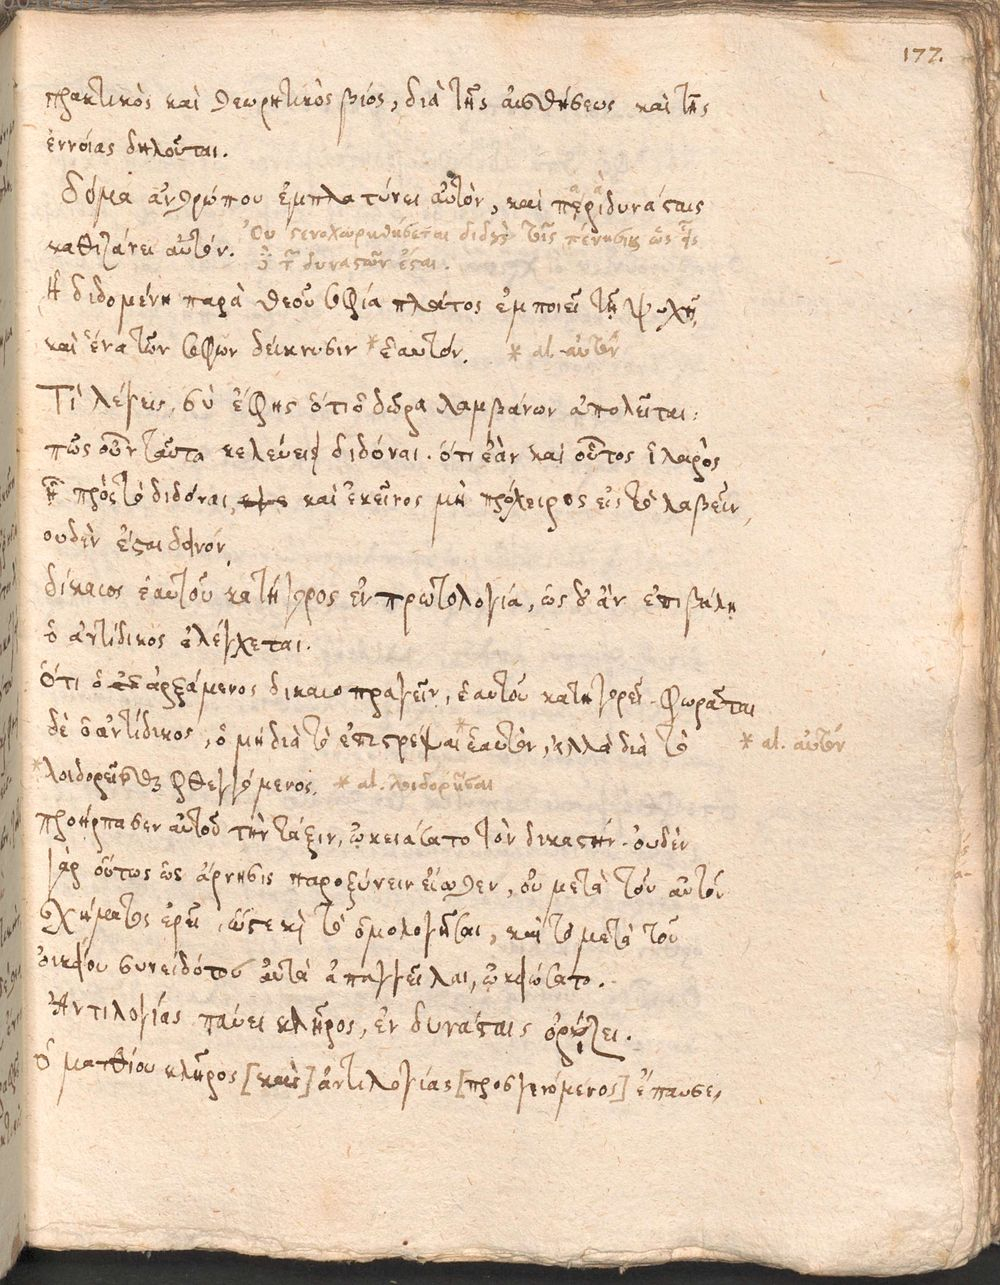 177.
πρακτικὸς καὶ θεωρητικὸς βιός, διὰ τῆς αἰσθήσεως καὶ τῆς
ἐννοίας δηλοῦται.
Δόμα ἀνθρώπου ἐμπλατύνει αὐτὸν, καὶ περιδυνάσταις
καθιζάνει αὐτόν. Οὐ στενοχωρηθήσεται τῆς
δυναστῶν ἔσται.
Ἡ διδομένη παρὰ θεοῦ σοφία πλάτος ἐμποιεῖ τῇ ψυχῇ,
καὶ ἕνα τῶν σοφῶν δείκνυσιν * ἑαυτόν. * al. αὐτὸν
Τί λέγεις, σὺ ἔφης ὅτι ὁ δῶρα λαμβάνων ἀπολεῖται;
πῶς οὖν ταῦτα κελεύεις διδόναι. ὅτι ἐὰν καὶ οὗτος ἱλαρὸς
ᾖ πρὸς τὸ διδόναι, καὶ ἐκεῖνος μὴ πρόχειρος εἰς τὸ λαβεῖν,
οὐδὲν ἔσται δεινόν,
δίκαιος ἑαυτοῦ κατήγορος ἐν πρωτολογία, ὡς δ' ἂν ἐπιβάλη
ὁ ἀντίδικος ἐλέγχεται.
Ὅτι ὁ ἀρξάμενος δικαιοπραγεῖν, ἑαυτοῦ κατηγορεῖ. Φωρᾶται
δὲ ὁ ἀντίδικος, ὁ μὴ διὰ τὸ ἐπιστρέψαι * ἑαυτὸν, ἀλλὰ διὰ τὸ * al. αὐτὸν
* λοιδορεῖσθαι φθεγγόμενος. * al. λοιδορῆσαι
προήρπασεν αὐτοῦ τὴν τάξιν, ᾠκειώσατο τὸν δικαστήν. οὐδὲν
γὰρ οὕτως ὡς ἄρνησις παροξύνειν εἴωθεν, οὐ μετὰ τοῦ αὐτοῦ
σχήματος ἐρεῖ, ὥστε κὴ τὸ ὁμολογῆσαι, καὶ τὸ μετὰ τοῦ
οἰκείου συνειδότος αὐτὰ ἀπαγγεῖλαι, ᾠκειώσατο.
Ἀντιλογίας παύει κλῆρος, ἐν δυνάσταις ὁρίζει.
Ὁ ματθίου κλῆρος [καὶ] ἀντιλογίας [προσγενόμενος] ἔπαυσε,